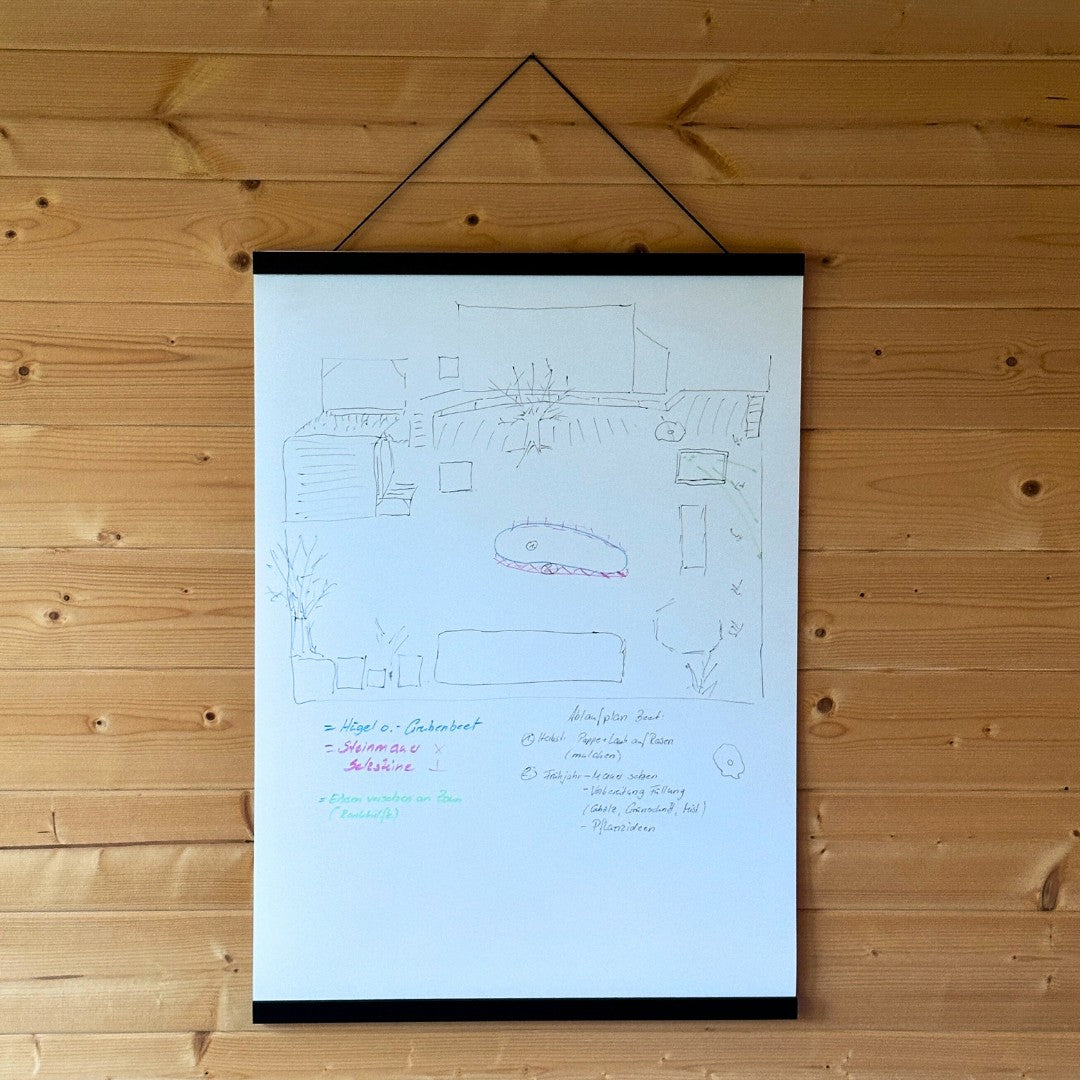 = Hügel o. - Grubenbeet
= Steinmauer X
Setsteine ⊥
= Eisen versetzen an Zaun
(Rankhilfe)
Ablaufplan Beet:
① Herbst: Pappe + Laub auf Rasen
(mulchen)
② Frühjahr - Mauer setzen
- Vorbereitung Füllung
(Gehölz, Grünschnitt, Mist)
- Pflanzideen